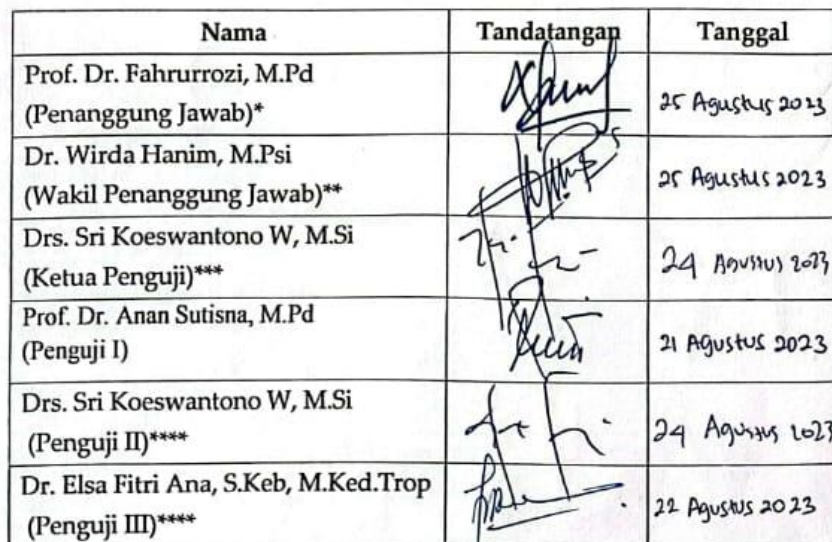 Nama Tandatangan Tanggal
Prof. Dr. Fahrurrozi, M.Pd
(Penanggung Jawab)* 25 Agustus 2023
Dr. Wirda Hanim, M.Psi
(Wakil Penanggung Jawab)** 25 Agustus 2023
Drs. Sri Koeswantono W, M.Si
(Ketua Penguji)*** 24 Agustus 2023
Prof. Dr. Anan Sutisna, M.Pd
(Penguji I) 21 Agustus 2023
Drs. Sri Koeswantono W, M.Si
(Penguji II)**** 24 Agustus 2023
Dr. Elsa Fitri Ana, S.Keb, M.Ked.Trop
(Penguji III)**** 22 Agustus 2023